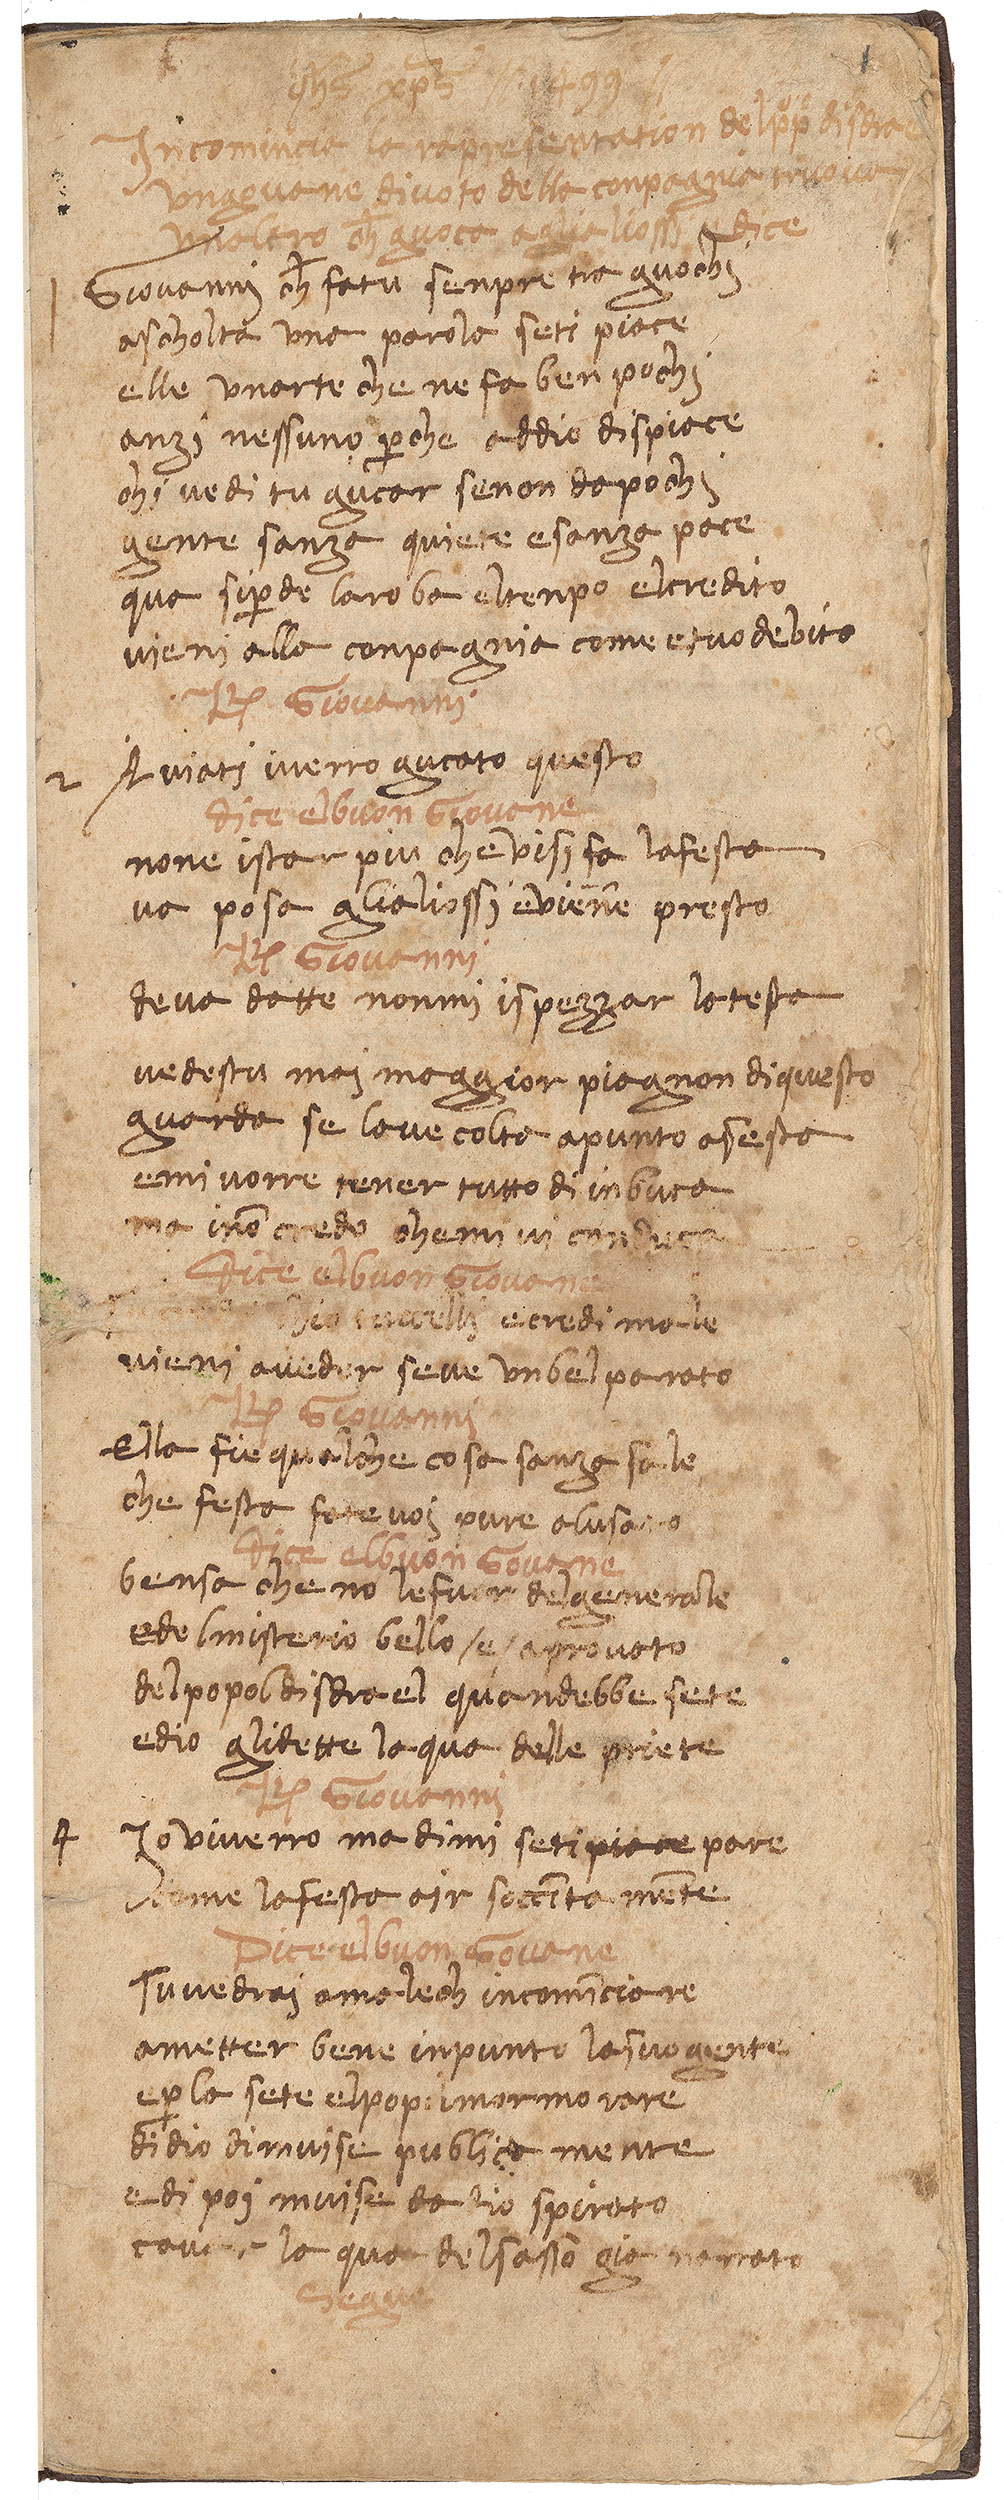 1
yhs xps // 1499 //
Incomincia la rapresentation del pp° disdrae
un govane divoto della conpagnia truova
unaltro ch guoca aglialiossi e dice
1 Giovannj ch fatu senpre tra guochj
ascholta una parola seti piace
elle unarte che ne fa ben pochj
anzj nessuno perche addio dispiace
chi vedi tu gucar senon dapochj
gente sanza quiete esanza pace
qua siperde laroba eltenpo elcredito
vieni alla conpagnia come etuo debito
R Giovannj
2 Aviatj iverro gucato questo
dice elbuon Giovane
none istar piu che visi fa lafesta
va posa aglialiossj eviene presto
R Giovannj
deva datte nonmi ispezzar latesta
vedestu maj maggior piagnon diquesto
guarda se lave colta apunto asesta
emi vorre tener tutto di inbuca
ma ino credo chemi vi conduca
Dice elbuon Giovane
ecredi male
vieni aveder seve unbel parato
R Giovannj
Ella fie qualche cosa sanza sale
che festa fate voj pure alusato
Dice elbuon Govane
bensa che no lefuor delgenerale
edelmisterio bello /e/ aprovato
delpopol disdrael quandebbe sete
edio glidette laqua delle priete
R Giovannj
4 Io viverro ma dimi setipiace pare
chome lafesta air soccinta mente
Dice elbuon Govane
Tu vedraj amalech incominciare
ametter bene inpunto lasuogente
eper la sete elpopol mormorare
didio dimuise publica mente
edi poj muise da dio spirato
cavar laqua delsasso gia narrato
Segue